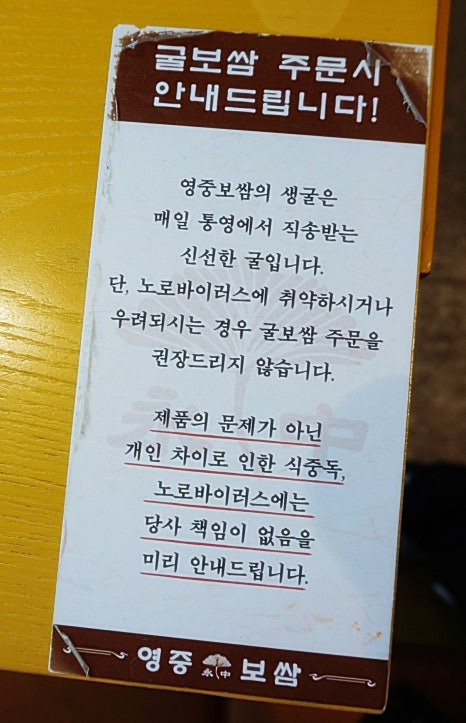 굴보쌈 주문시
안내드립니다!
영중보쌈의 생굴은
매일 통영에서 직송받는
신선한 굴입니다.
단, 노로바이러스에 취약하시거나
우려되시는 경우 굴보쌈 주문을
권장드리지 않습니다.
제품의 문제가 아닌
개인 차이로 인한 식중독,
노로바이러스에는
당사 책임이 없음을
미리 안내드립니다.
영중 永中 보쌈